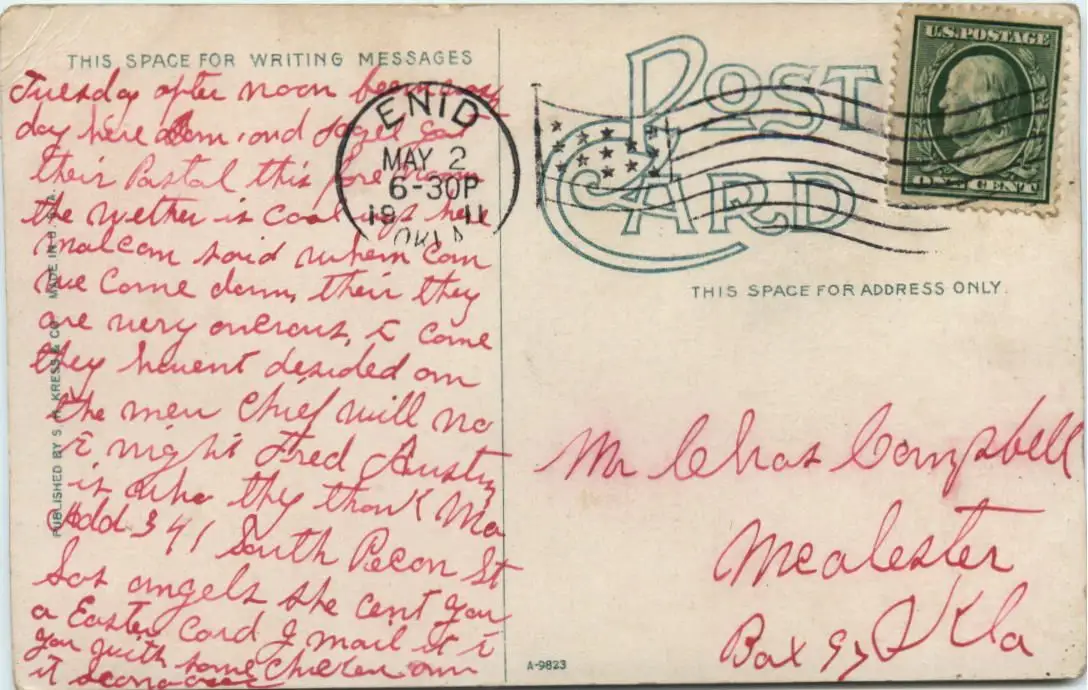 THIS SPACE FOR WRITING MESSAGES
Tuesday after noon
day here and got
their Postal this fore noon
the wether is cool up here
malcom said when can
we come down, their they
are very onerous, to come
they havent desided on
the men Chief will no
to night Fred Austin
is who they thank Ma
Add 341 South Pecon St
Los angels she cent you
a Easter Card I mail it to
you with some Chicken on
it
PUBLISHED BY S. H. KRESS & CO. MADE IN U.S.A.
ENID
MAY 2
6-30P
1911
OKLA
POST CARD
U.S. POSTAGE
ONE CENT
THIS SPACE FOR ADDRESS ONLY.
Mr Chas Campbell
Mcalester
Box Okla
A-9823